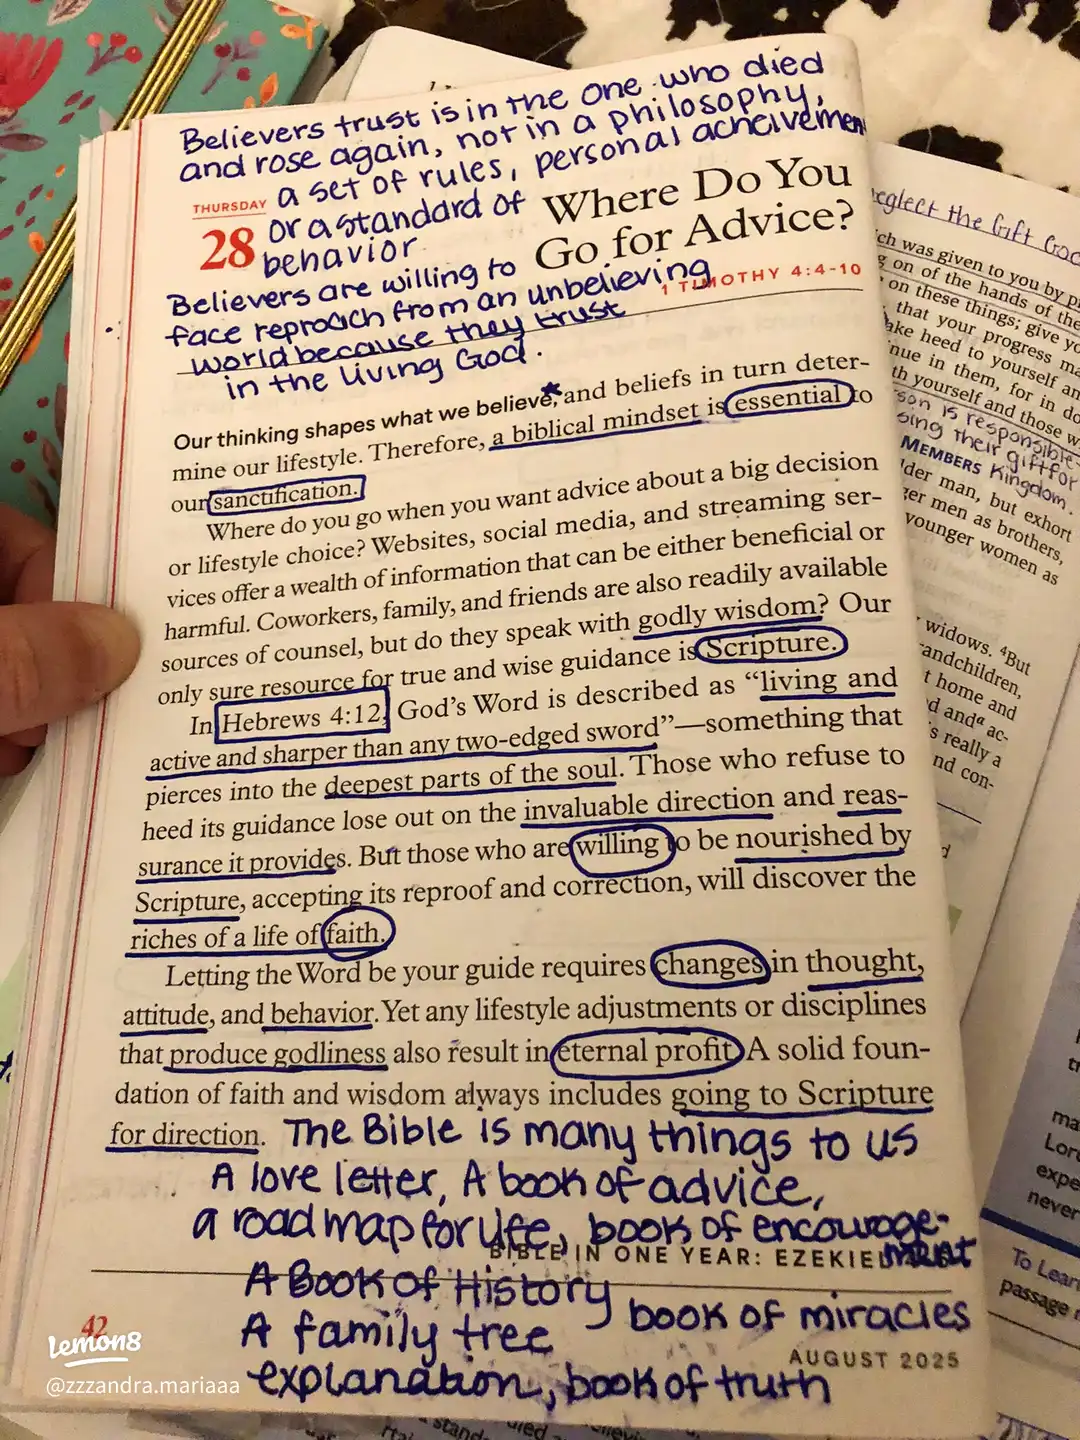 Believers trust is in the one who died
and rose again, not in a philosophy,
a set of rules, personal acheivemen
or a standard of
behavior
THURSDAY
28
Where Do You
Go for Advice?
1 TIMOTHY 4:4-10
Believers are willing to
face reproach from an unbelieving
world because they trust
in the living God.
Our thinking shapes what we believe, and beliefs in turn deter-
mine our lifestyle. Therefore, a biblical mindset is essential to
our sanctification.
Where do you go when you want advice about a big decision
or lifestyle choice? Websites, social media, and streaming ser-
vices offer a wealth of information that can be either beneficial or
harmful. Coworkers, family, and friends are also readily available
sources of counsel, but do they speak with godly wisdom? Our
only sure resource for true and wise guidance is Scripture.
In Hebrews 4:12, God's Word is described as “living and
active and sharper than any two-edged sword”—something that
pierces into the deepest parts of the soul. Those who refuse to
heed its guidance lose out on the invaluable direction and reas-
surance it provides. But those who are willing to be nourished by
Scripture, accepting its reproof and correction, will discover the
riches of a life of faith.
Letting the Word be your guide requires changes in thought,
attitude, and behavior. Yet any lifestyle adjustments or disciplines
that produce godliness also result in eternal profit. A solid foun-
dation of faith and wisdom always includes going to Scripture
for direction.
The Bible is many things to us
A love letter, A book of advice,
a road map for life, book of encourage-
ment
BIBLE IN ONE YEAR: EZEKIEL
A Book of History
book of miracles
A family tree
explanation, book of truth
42
AUGUST 2025
Lemon8
@zzzandra.mariaaa
neglect the Gift God
ch was given to you by
on of the hands of the
on these things; give
that your progress
take heed to yourself
in them, for in
yourself and those
is responsible
using their gift for
Kingdom.
MEMBERS
man, but exhort
men as brothers,
younger women as
widows. ⁴But
grandchildren,
t home and
and ac-
is really a
nd con-
Lord
never
To Learn
passage